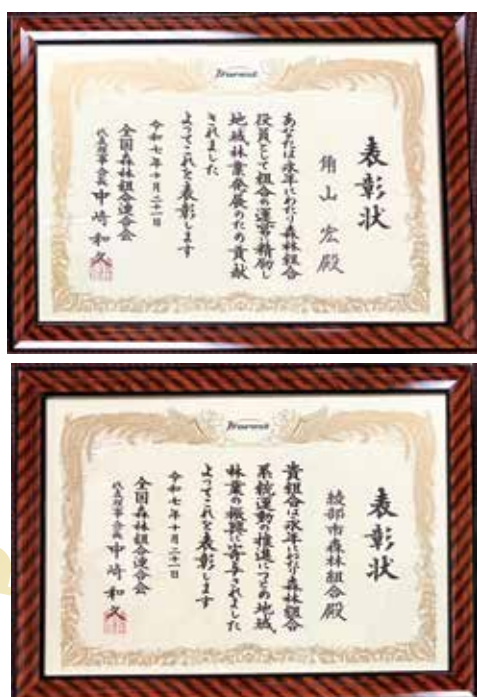 表彰状
角山 宏殿
あなたは永年にわたり森林組合
役員として組合の運営に精励し
地域林業発展のため貢献
されました
よってこれを表彰します
令和七年十月二十一日
全国森林組合連合会
代表理事会長 中崎和久
表彰状
綾部市森林組合殿
貴組合は永年にわたり森林組合
系統運動の推進につとめ地域
林業の振興に寄与されました
よってこれを表彰します
令和七年十月二十一日
全国森林組合連合会
代表理事会長 中崎和久